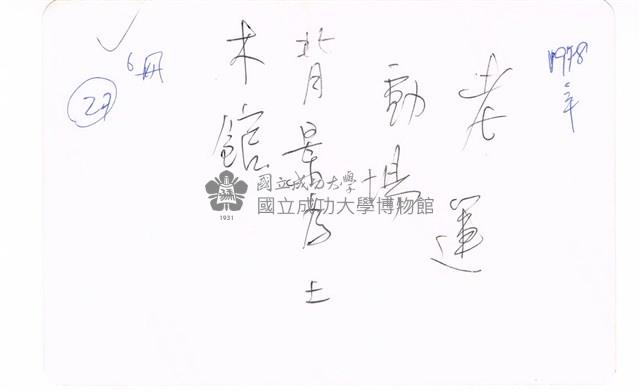 1978年
老運
動場
背景為土
木館
6冊
27
國立成功大學
國立成功大學博物館
1931